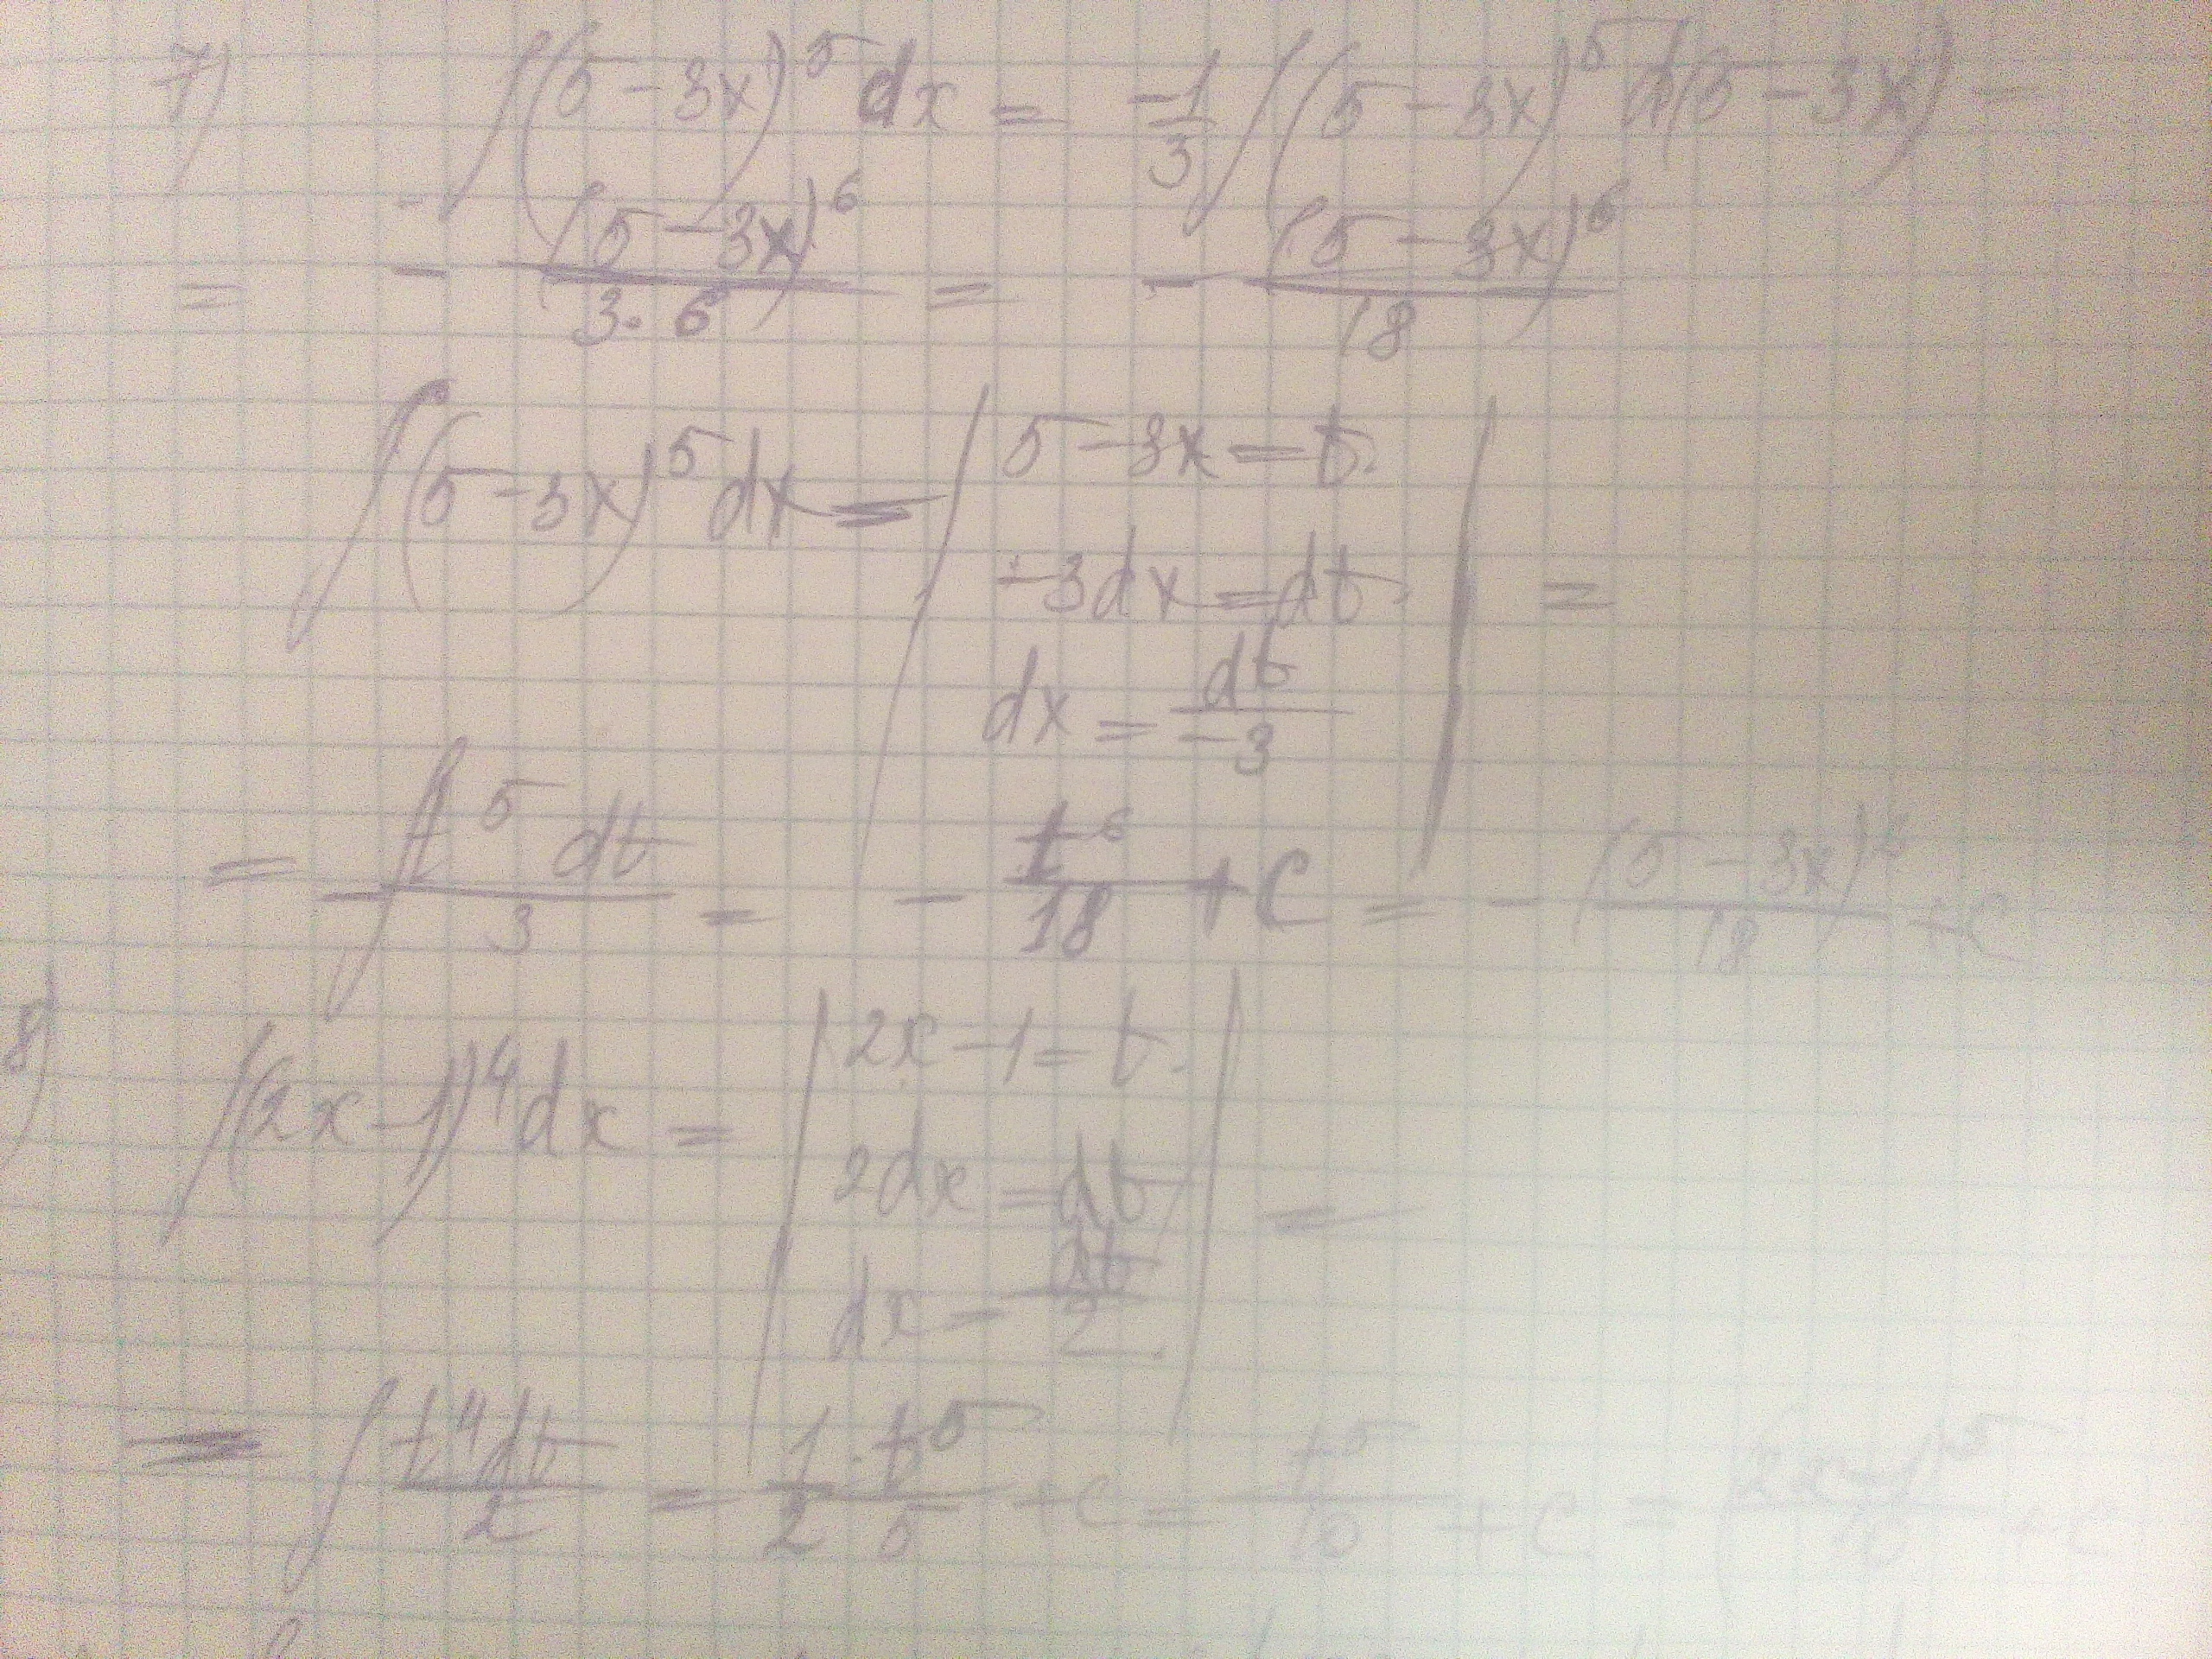 7) ∫(5-3x)⁵dx = -1/3 ∫(5-3x)⁵d(5-3x) =
= - (5-3x)⁶/(3·6) = - (5-3x)⁶/18
∫(5-3x)⁵dx = | 5-3x=t
-3dx=dt | =
dx = dt/-3
= -∫ t⁵dt/3 = - t⁶/18 + C = - (5-3x)⁶/18 + C
8) ∫(2x-1)⁴dx = | 2x-1=t
2dx=dt | =
dx = dt/2
= ∫ t⁴dt/2 = 1/2 · t⁵/5 + C = t⁵/10 + C = (2x-1)⁵/10 + C